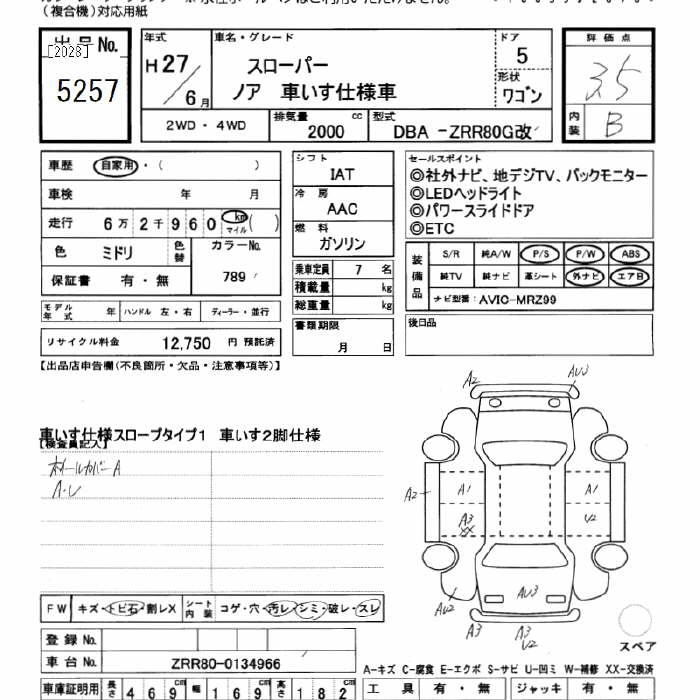 （複合機）対応用紙
出品No.
[2028]
5257
年式
H27/6月
車名・グレード
スローパー
ノア 車いす仕様車
ドア
5
形状
ワゴン
2WD・4WD
排気量
2000 cc
型式
DBA -ZRR80G改
評価点
3.5
内装
B
車歴 自家用・（ ）
車検 年 月
走行 6万2千960 km マイル ( )
色 ミドリ 色替 カラーNo. 789
保証書 有・無
モデル年式 年 ハンドル 左・右 ディーラー・並行
リサイクル料金 12,750 円 預託済
シフト
IAT
冷房
AAC
燃料
ガソリン
乗車定員 7 名
積載量 kg
総重量 kg
書類期限
月 日
セールスポイント
◎社外ナビ、地デジTV、バックモニター
◎LEDヘッドライト
◎パワースライドドア
◎ETC
装備品
S/R 純A/W P/S P/W ABS
純TV 純ナビ 革シート 外ナビ エアB
ナビ型番： AVIC-MRZ99
後日品
【出品店申告欄(不良箇所・欠品・注意事項等)】
車いす仕様スロープタイプ1 車いす2脚仕様
【検査員記入】
ホイールカバーA
A・U
A2
AU3
A2
A1
A3
XX
A1
U2
AU3
AU2
A3
A3
U2
スペア
FW キズ・トビ石・割レX シート内装 コゲ・穴・汚レ・シミ・破レ・スレ
登録No.
車台No. ZRR80-0134966
車庫証明用 長さ 469 cm 幅 169 cm 高さ 182 cm
A-キズ C-腐食 E-エクボ S-サビ U-凹ミ W-補修 XX-交換済
工具 有・無 ジャッキ 有・無